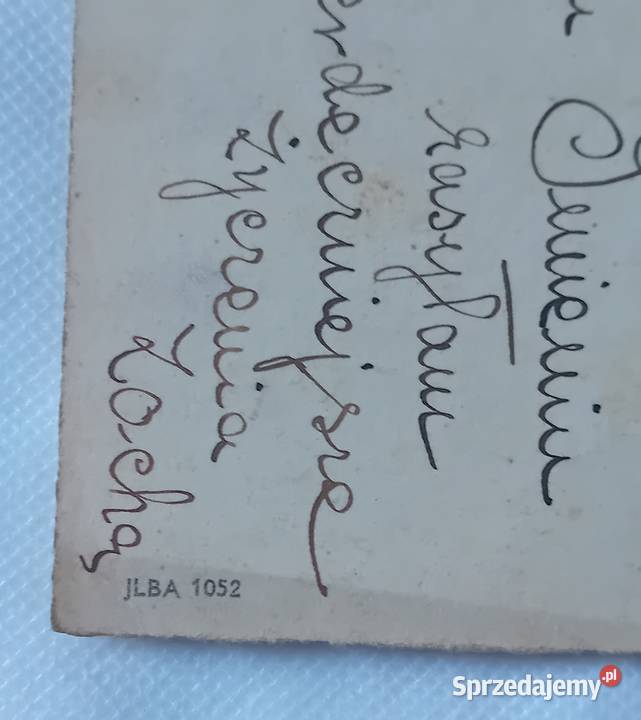 Imieniu
zasyłam
erdeczniejsze
życzenia
Zocha
JLBA 1052
Sprzedajemy.pl